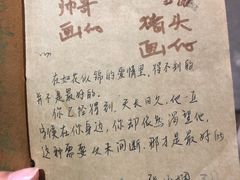 帅哥
画的
猪头
画仔
在如花似锦的爱情里，得不到的
并不是最好的。
你已经得到，天长日久，他一直
当候在你身边，你却依然渴望他，
这种需要从未间断，那才是最好的